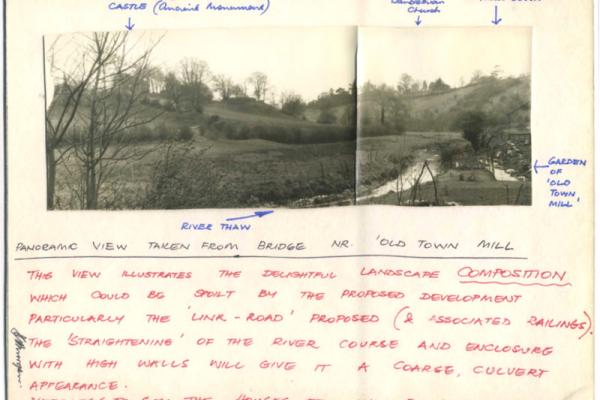 CASTLE (Ancient Monument)
Llanblethian
Church
RIVER THAW
GARDEN
OF
'OLD
TOWN
MILL'
PANORAMIC VIEW TAKEN FROM BRIDGE NR. 'OLD TOWN MILL
THIS VIEW ILLUSTRATES THE DELIGHTFUL LANDSCAPE COMPOSITION
WHICH COULD BE SPOILT BY THE PROPOSED DEVELOPMENT
PARTICULARLY THE 'LINK-ROAD' PROPOSED (& ASSOCIATED RAILINGS).
THE 'STRAIGHTENING' OF THE RIVER COURSE AND ENCLOSURE
WITH HIGH WALLS WILL GIVE IT A COARSE, CULVERT
APPEARANCE.
THE HOUSES